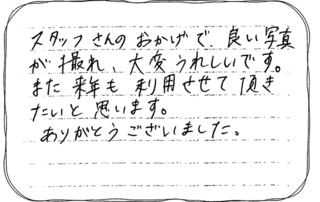 スタッフさんのおかげで、良い写真
が撮れ、大変うれしいです。
また来年も利用させて頂き
たいと思います。
ありがとうございました。